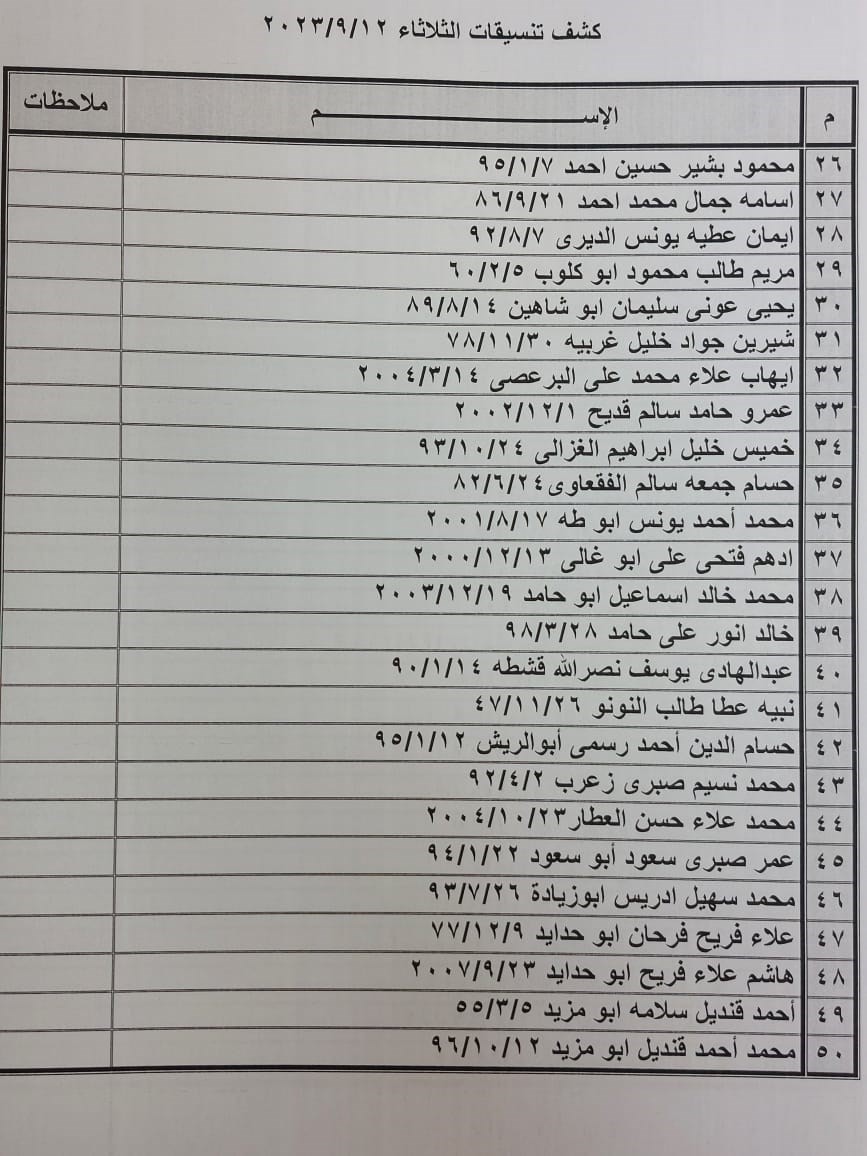 كشف تنسيقات الثلاثاء ٢٠٢٣/٩/١٢
م الإســـم ملاحظات
٢٦ محمود بشير حسين احمد ٩٥/١/٧
٢٧ اسامه جمال محمد احمد ٨٦/٩/٢١
٢٨ ايمان عطيه يونس الديرى ٩٢/٨/٧
٢٩ مريم طالب محمود ابو كلوب ٦٠/٢/٥
٣٠ يحيى عونى سليمان ابو شاهين ٨٩/٨/١٤
٣١ شيرين جواد خليل غربيه ٧٨/١١/٣٠
٣٢ ايهاب علاء محمد على البرعصى ٢٠٠٤/٣/١٤
٣٣ عمرو حامد سالم قديح ٢٠٠٢/١٢/١
٣٤ خميس خليل ابراهيم الغزالى ٩٣/١٠/٢٤
٣٥ حسام جمعه سالم الفقعاوى ٨٢/٦/٢٤
٣٦ محمد أحمد يونس ابو طه ٢٠٠١/٨/١٧
٣٧ ادهم فتحى على ابو غالى ٢٠٠٠/١٢/١٣
٣٨ محمد خالد اسماعيل ابو حامد ٢٠٠٣/١٢/١٩
٣٩ خالد انور على حامد ٩٨/٣/٢٨
٤٠ عبدالهادى يوسف نصرالله قشطه ٩٠/١/١٤
٤١ نبيه عطا طالب النونو ٤٧/١١/٢٦
٤٢ حسام الدين أحمد رسمى أبوالريش ٩٥/١/١٢
٤٣ محمد نسيم صبرى زعرب ٩٢/٤/٢
٤٤ محمد علاء حسن العطار ٢٠٠٤/١٠/٢٣
٤٥ عمر صبرى سعود أبو سعود ٩٤/١/٢٢
٤٦ محمد سهيل ادريس ابوزيادة ٩٣/٧/٢٦
٤٧ علاء فريح فرحان ابو حدايد ٧٧/١٢/٩
٤٨ هاشم علاء فريح ابو حدايد ٢٠٠٧/٩/٢٣
٤٩ أحمد قنديل سلامه ابو مزيد ٥٥/٣/٥
٥٠ محمد أحمد قنديل ابو مزيد ٩٦/١٠/١٢